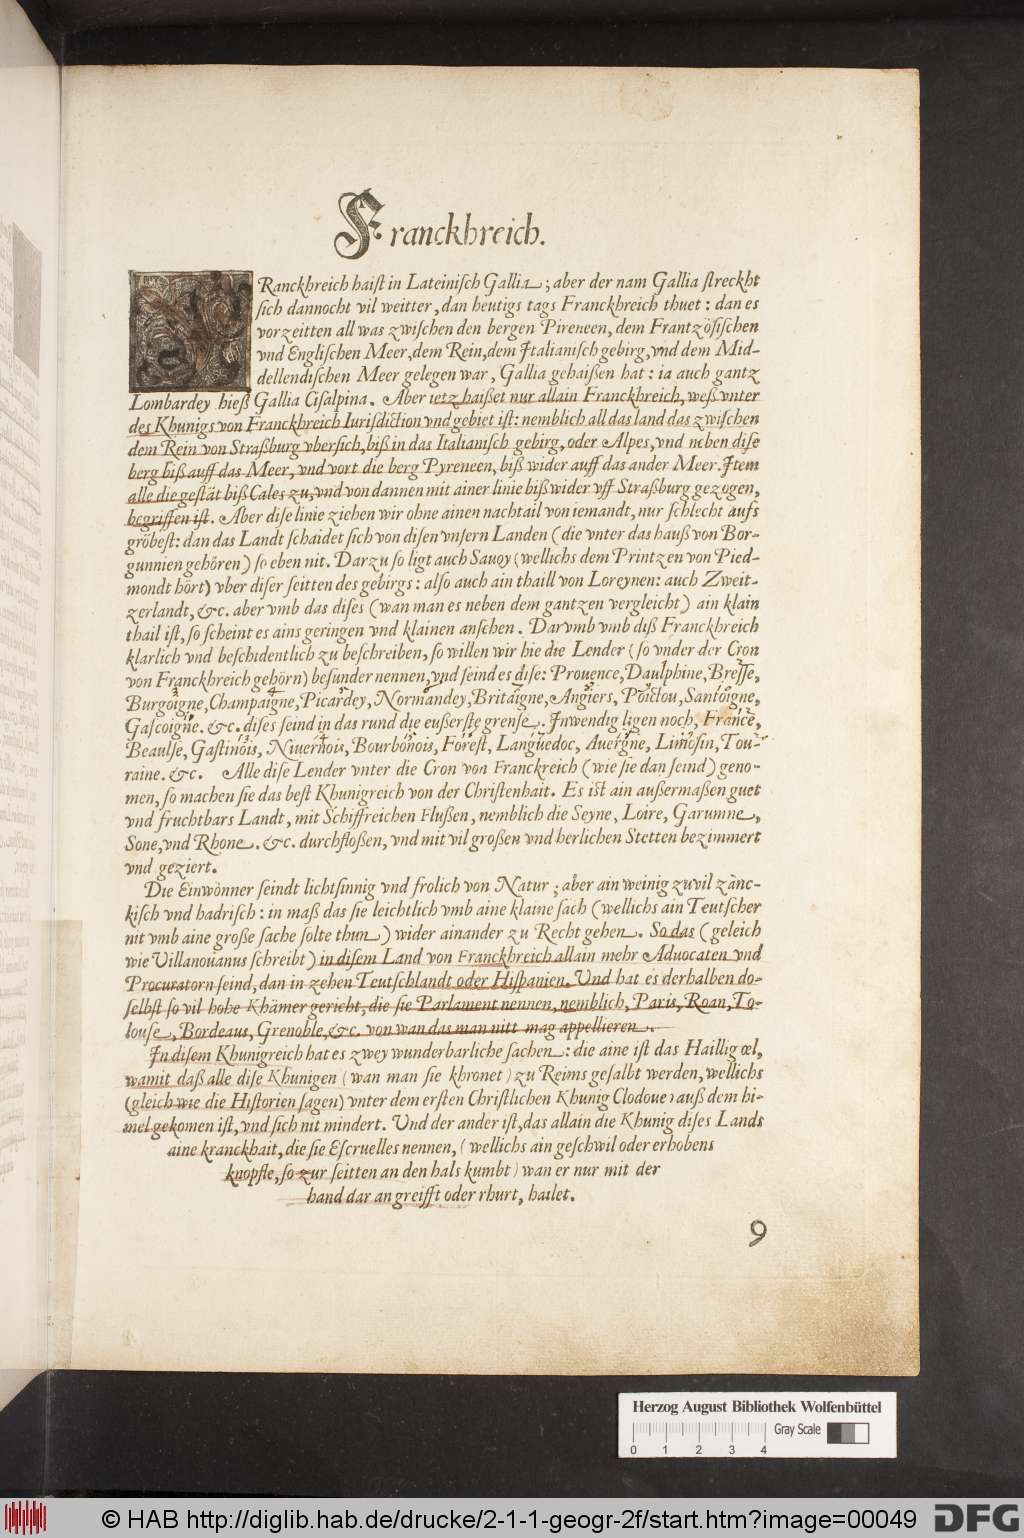 Franckhreich.
FRanckhreich haiſt in Lateiniſch Gallia; aber der nam Gallia ſtreckht
ſich dannocht vil weitter, dan heutigs tags Franckhreich thuet: dan es
vorzeitten all was zwiſchen den bergen Pireneen, dem Frantzöſiſchen
vnd Engliſchen Meer, dem Rein, dem Italianiſch gebirg, vnd dem Mid-
dellendiſchen Meer gelegen war, Gallia gehaißen hat: ia auch gantz
Lombardey hieß Gallia Ciſalpina. Aber ietz haißet nur allain Franckhreich, weß vnter
des Khunigs von Franckhreich Iuriſdiction vnd gebiet iſt: nemblich all das land das zwiſchen
dem Rein von Straßburg vberſich, biß in das Italianiſch gebirg, oder Alpes, vnd neben diſe
berg biß auff das Meer, vnd vort die berg Pyreneen, biß wider auff das ander Meer. Item
alle die geſtät biß Cales zu, vnd von dannen mit ainer linie biß wider vff Straßburg gezogen,
begriffen iſt. Aber diſe linie ziehen wir ohne ainen nachtail von iemandt, nur ſchlecht aufs
gröbeſt: dan das Landt ſchaidet ſich von diſen vnſern Landen (die vnter das hauß von Bor-
gunnien gehören) ſo eben nit. Darzu ſo ligt auch Sauoy (wellichs dem Printzen von Pied-
mondt hört) vber diſer ſeitten des gebirgs: alſo auch ain thaill von Loreynen: auch Zweit-
zerlandt, &c. aber vmb das diſes (wan man es neben dem gantzen vergleicht) ain klain
thail iſt, ſo ſcheint es ains geringen vnd klainen anſehen. Darvmb vmb diß Franckhreich
klarlich vnd beſchidentlich zu beſchreiben, ſo willen wir hie die Lender (ſo vnder der Cron
von Franckhreich gehörn) beſunder nennen, vnd ſeind es diſe: Prouence, Daulphine, Breſſe,
Burgoigne, Champaigne, Picardey, Normandey, Britaigne, Angiers, Poictou, Santoigne,
Gaſcoigne. &c. diſes ſeind in das rund die eußerſte grenſe. Inwendig ligen noch, France,
Beaulſe, Gaſtinois, Niuernois, Bourbonois, Foreſt, Languedoc, Auergne, Limoſin, Tou-
raine. &c. Alle diſe Lender vnter die Cron von Franckreich (wie ſie dan ſeind) geno-
men, ſo machen ſie das beſt Khunigreich von der Chriſtenhait. Es iſt ain außermaßen guet
vnd fruchtbars Landt, mit Schiffreichen Flußen, nemblich die Seyne, Loire, Garumne,
Sone, vnd Rhone. &c. durchfloßen, vnd mit vil großen vnd herlichen Stetten bezimmert
vnd geziert.
Die Einwönner ſeindt lichtſinnig vnd frolich von Natur; aber ain weinig zuvil zänc-
kiſch vnd hadriſch: in maß das ſie leichtlich vmb aine klaine ſach (wellichs ain Teutſcher
nit vmb aine große ſache ſolte thun) wider ainander zu Recht gehen. So das (geleich
wie Villanouanus ſchreibt) in diſem Land von Franckhreich allain mehr Aduocaten vnd
Procuratorn ſeind, dan in zehen Teutſchlandt oder Hiſpanien. Und hat es derhalben do-
ſelbſt ſo vil hohe Khämer gericht, die ſie Parlament nennen, nemblich, Paris, Roan, To-
louſe, Bordeaus, Grenoble, &c. von wan das man nitt mag appellieren.
In diſem Khunigreich hat es zwey wunderbarliche ſachen: die aine iſt das Haillig œl,
wamit daß alle diſe Khunigen (wan man ſie khronet) zu Reims geſalbt werden, wellichs
(gleich wie die Hiſtorien ſagen) vnter dem erſten Chriſtlichen Khunig Clodoueo auß dem hi-
mel gekomen iſt, vnd ſich nit mindert. Und der ander iſt, das allain die Khunig diſes Lands
aine kranckhait, die ſie Eſcruelles nennen, (wellichs ain geſchwil oder erhobens
knopfle, ſo zur ſeitten an den hals kumbt) wan er nur mit der
hand dar an greifft oder rhurt, hailet.
9
Herzog August Bibliothek Wolfenbüttel
Gray Scale
0 1 2 3 4
© HAB http://diglib.hab.de/drucke/2-1-1-geogr-2f/start.htm?image=00049
DFG